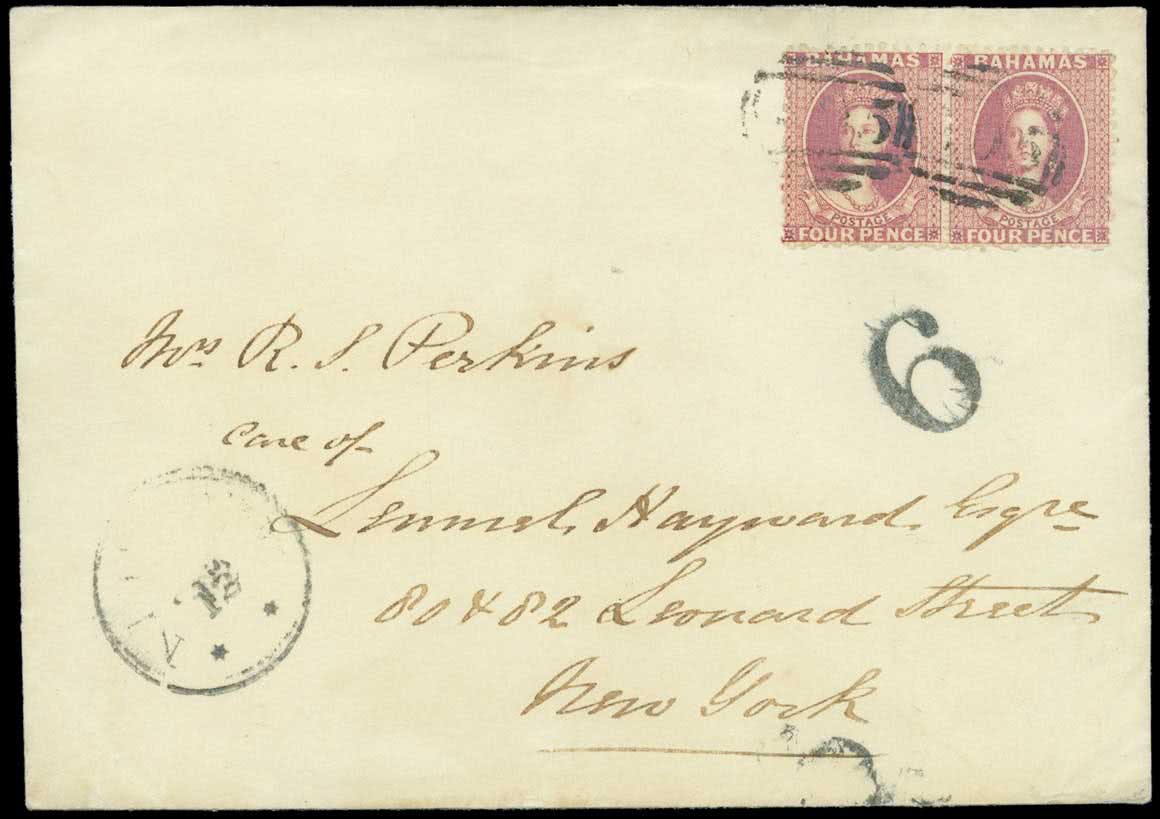 BAHAMAS BAHAMAS
POSTAGE POSTAGE
FOUR PENCE FOUR PENCE
6
Mrs R. S. Perkins
care of
Lemuel Hayward Esqre
80 & 82 Leonard Street
New York